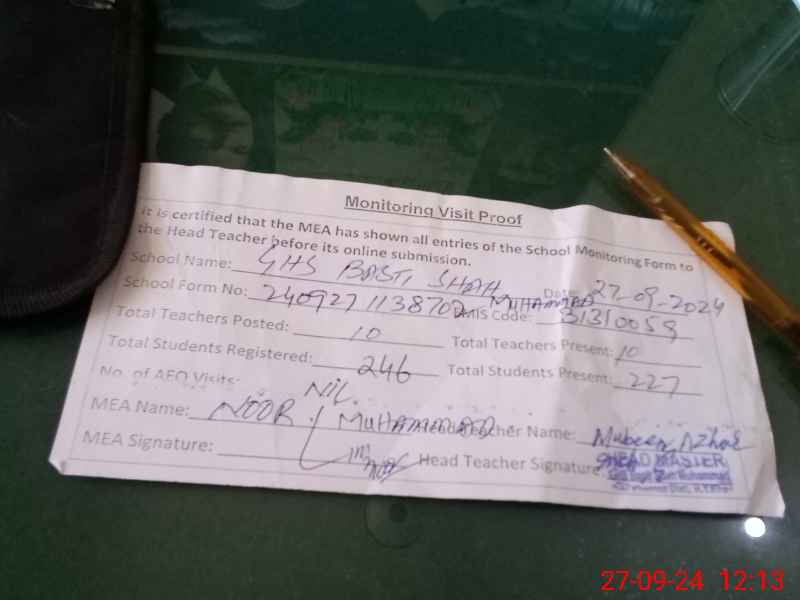 Monitoring Visit Proof
It is certified that the MEA has shown all entries of the School Monitoring Form to
the Head Teacher before its online submission.
School Name: GHS BASTI SHAH MUHAMMAD Date: 27-09-2024
School Form No: 240927113870 EMIS Code: 31310059
Total Teachers Posted: 10 Total Teachers Present: 10
Total Students Registered: 246 Total Students Present: 227
No. of AEO Visits: NIL
MEA Name: NOOR MUHAMMAD Teacher Name: Mubeen Azhar
MEA Signature: Head Teacher Signature
HEAD MASTER
27-09-24 12:13